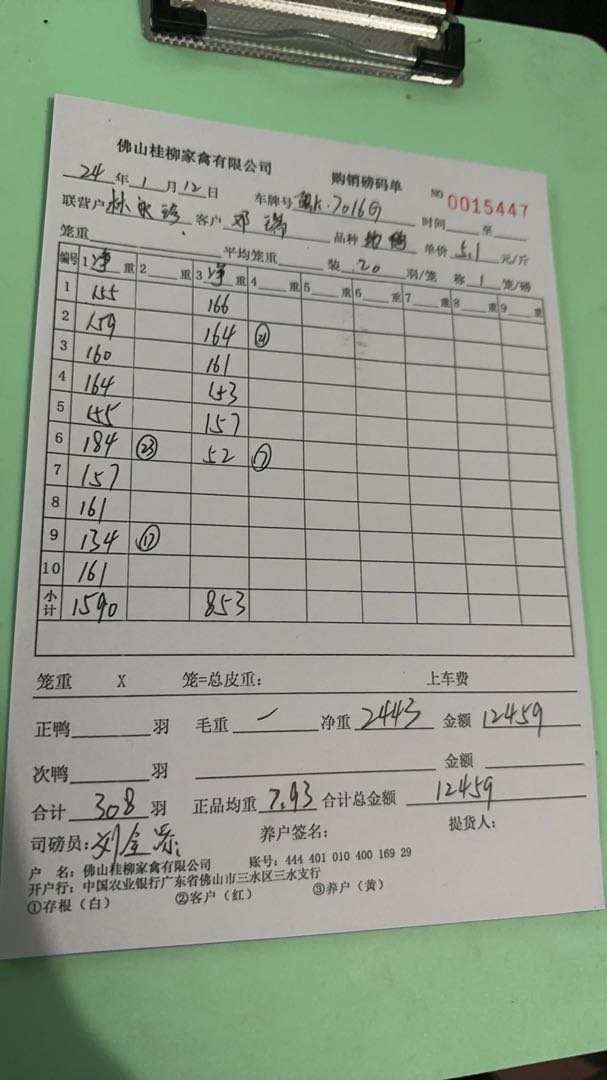 佛山桂柳家禽有限公司 购销磅码单 NO 0015447
24 年 1 月 12 日 车牌号 7016G 时间 至
联营户 林 客户 邓 品种 单价 5.1 元/斤
笼重 平均笼重 装 20 羽/笼 称 1 笼/磅
编号 1 净 重 2 重 3 净 重 4 重 5 重 6 重 7 重 8 重 9 重
1 155 166
2 159 164 ㉑
3 160 161
4 164 153
5 155 157
6 184 ㉓ 52 ⑦
7 157
8 161
9 134 ⑰
10 161
小计 1590 853
笼重 X 笼=总皮重： 上车费
正鸭 羽 毛重 一 净重 2443 金额 12459
次鸭 羽 金额
合计 308 羽 正品均重 7.93 合计总金额 12459
司磅员： 刘金 养户签名： 提货人：
户 名：佛山桂柳家禽有限公司 账号：444 401 010 400 169 29
开户行：中国农业银行广东省佛山市三水区三水支行
①存根（白） ②客户（红） ③养户（黄）